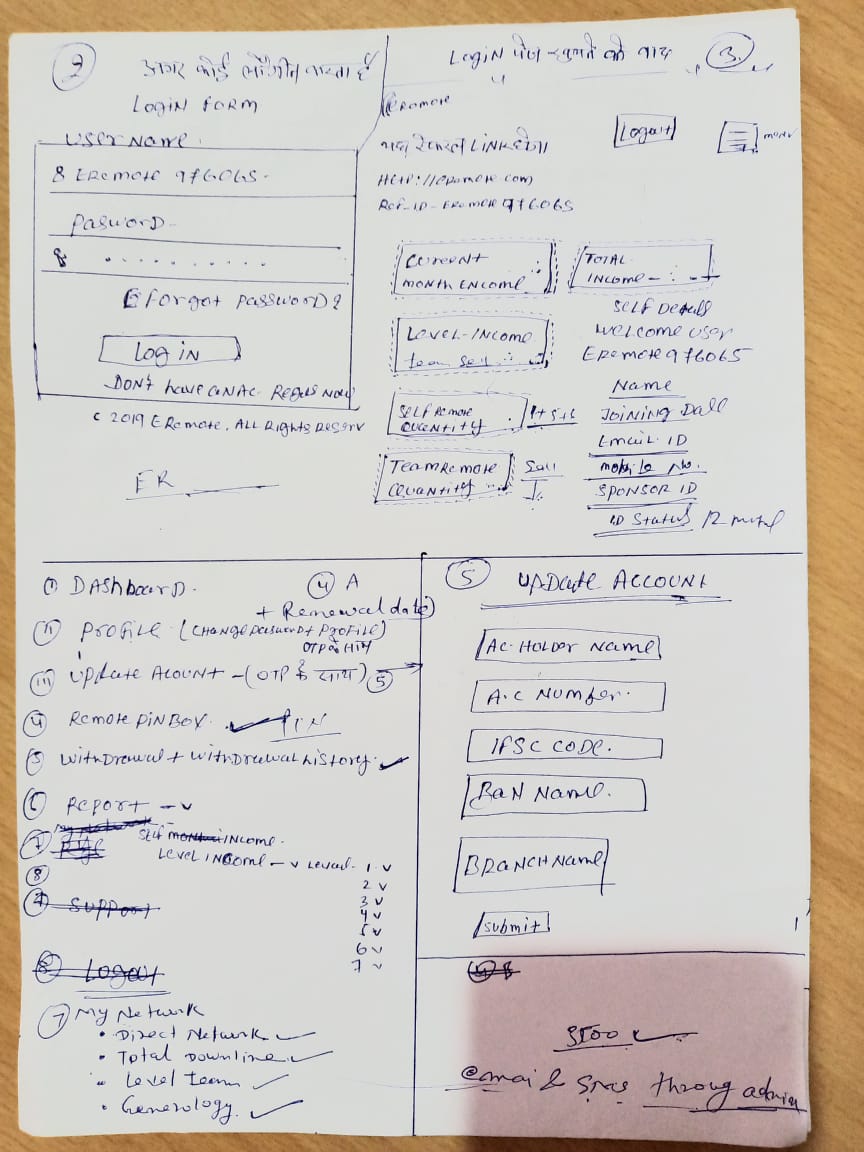 2
अगर कोई लॉगीन करता है
LOGIN FORM
USERNAME
EREMOTE 976065.
PASWORD
. . . . . . . . . .
Forgot PASSWORD?
LOG IN
DON'T HAVE AN AC. REGUS NOW
C 2019 EREMOTE. ALL RIGHTS RESERV
ER
LOGIN पेज खुलने के बाद
3.
EREMOTE
Logout
MENU
LINK होगा
HTTP://EREMOTE.COM
REF-ID- EREMOTE 976065
CURRENT
MONTH ENCOME
TOTAL
INCOME
LEVEL-INCOME
team sell
SELF REMOTE
QUENTITY
1+5+6
TEAM REMOTE
QUENTITY
Sell
SELF Details
WELCOME USER
EREMOTE 976065
Name
JOINING Date
EMAIL ID
mobile No.
SPONSOR ID
ID Status
(I) DASHboarD.
(4) A
+ Renewal date)
(II) PROFILE (CHANGE PASWORD + PROFILE)
OTP के साथ
(III) UPDate ACOUNT - (OTP के साथ) (5)
(4) REMOTE PIN BOX. PIN
(5) WITHDrawal + WITHDrawal HISTORY.
(6) REPORT
My Network
(7)
SELF month INCOME.
LEVEL INCOME - Level- 1
(8)
2
3
(7) SUPPORT
4
5
6
(8) Logout
7
(7) My Network
• Direct Network
• Total Downline
• Level team
• Generology.
(5) UPDate ACCOUNT
AC- HOLDER NAME
A.C NUMBER.
IFSC CODE.
BaN NAME.
BRANCH NAME
Submit
3500
@mai & Sms throug admin